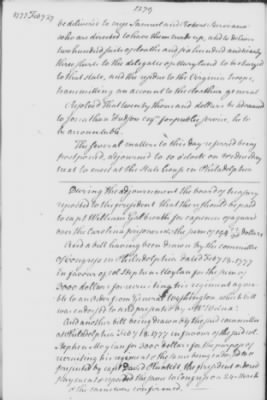 1777 Feb 27
be delivered to mess Samuel and Robert Purviance
who are directed to have them made up, and to deliver
two hundred suits of cloaths and six hundred and ninety
three shirts to the delegates of Maryland to be charged
to that state, and the residue to the Virginia troops,
transmitting an account to the cloathier general
Resolved That twenty thousand dollars be advanced
to Jonathan Hudson esqr for public service, he to
be accountable.
The several matters to this day referred being
postponed, adjourned to 10 o'clock on Wednesday
next to meet at the State house in Philadelphia
During the adjournment the board of treasury
reported to the president that there is to be paid
to capt William Galbreath for expences of a guard
over the Carolina prisoners the sum of dollars
And a bill having been drawn by the committee
of Congress in Philadelphia dated Feb 14. 1777
in favour of col Stephen Moylan for the sum of
3000 dollars for recruiting his regiment agree
able to an order from General Washington which bill
was endorsed to and presented by
And another bill being drawn by the said committee
at Philadelphia Feb 14. 1777 in favour of the said col
Stephen Moylan for 3000 dollars for the purpose of
recruiting his regiment the same being endorsed &
presented by capt David Plunkett the president ordered
payment & reported the same to Congress on 24 March
& the same were confirmed.